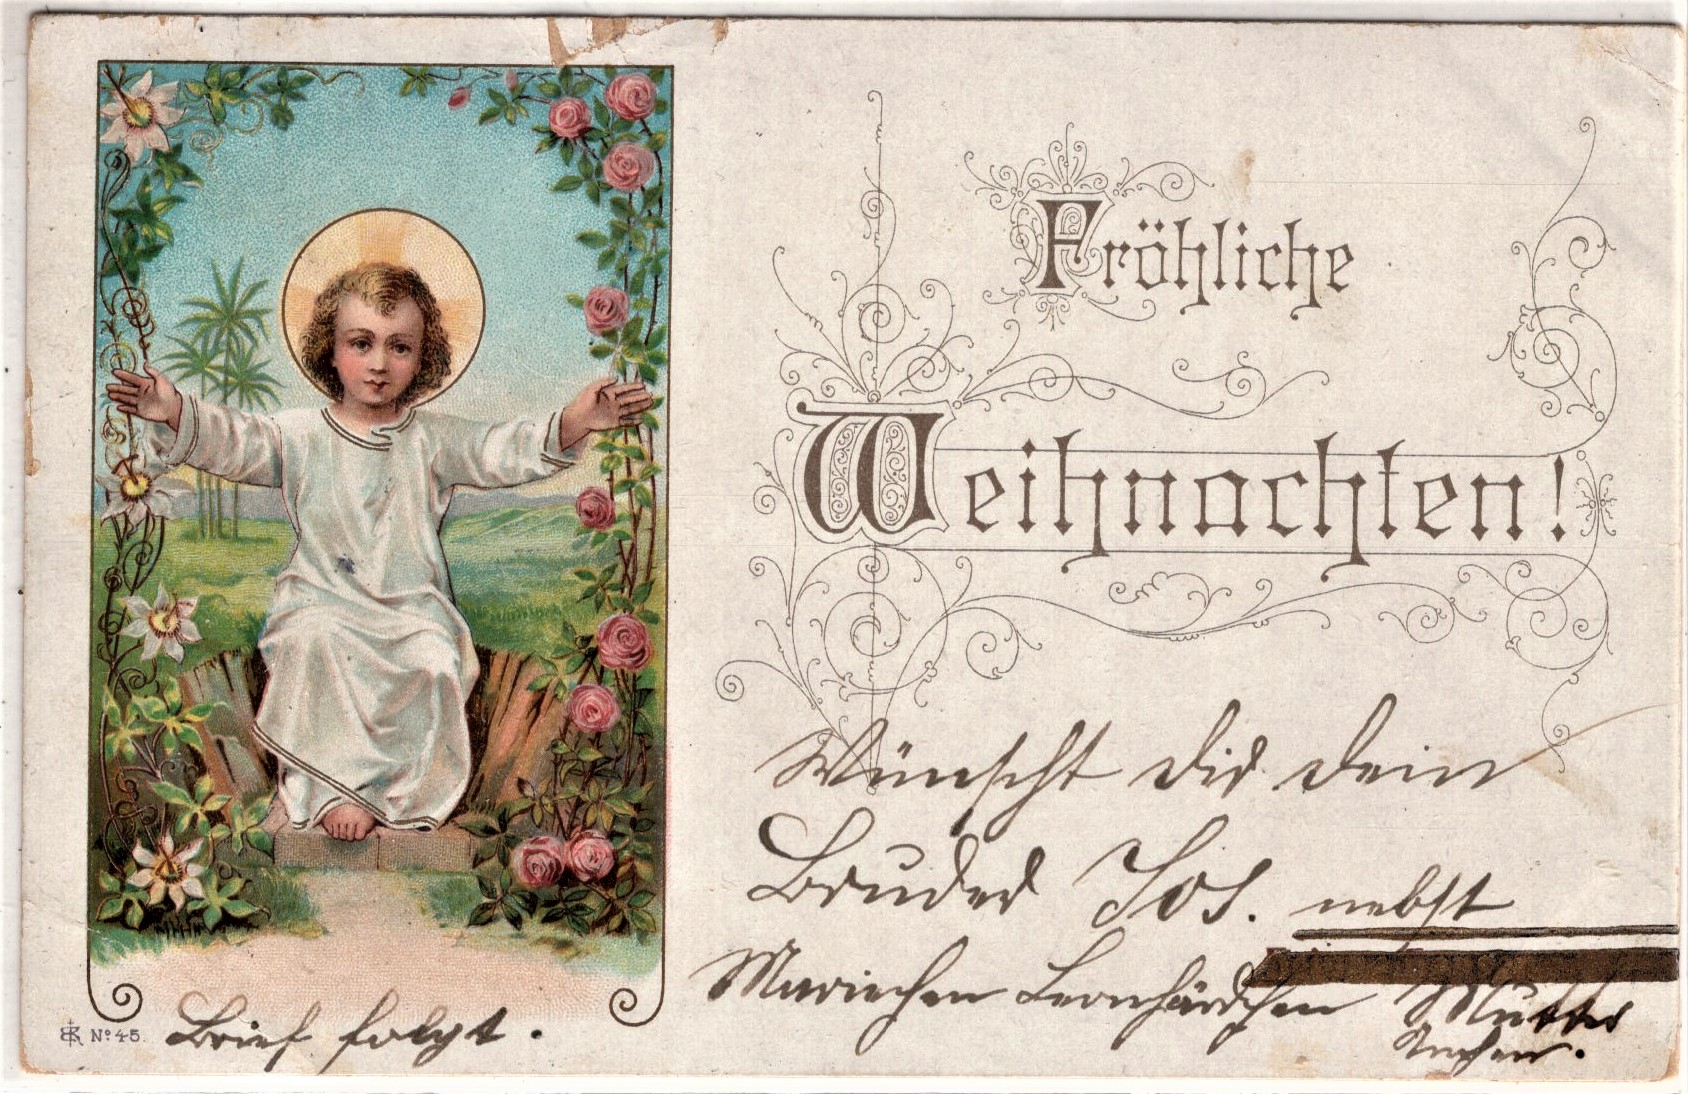 Fröhliche
Weihnachten!
Wünscht dir dein
Bruder Jos. nebst
Mariechen Leonhärdchen Mutter
Brief folgt.
No 45.